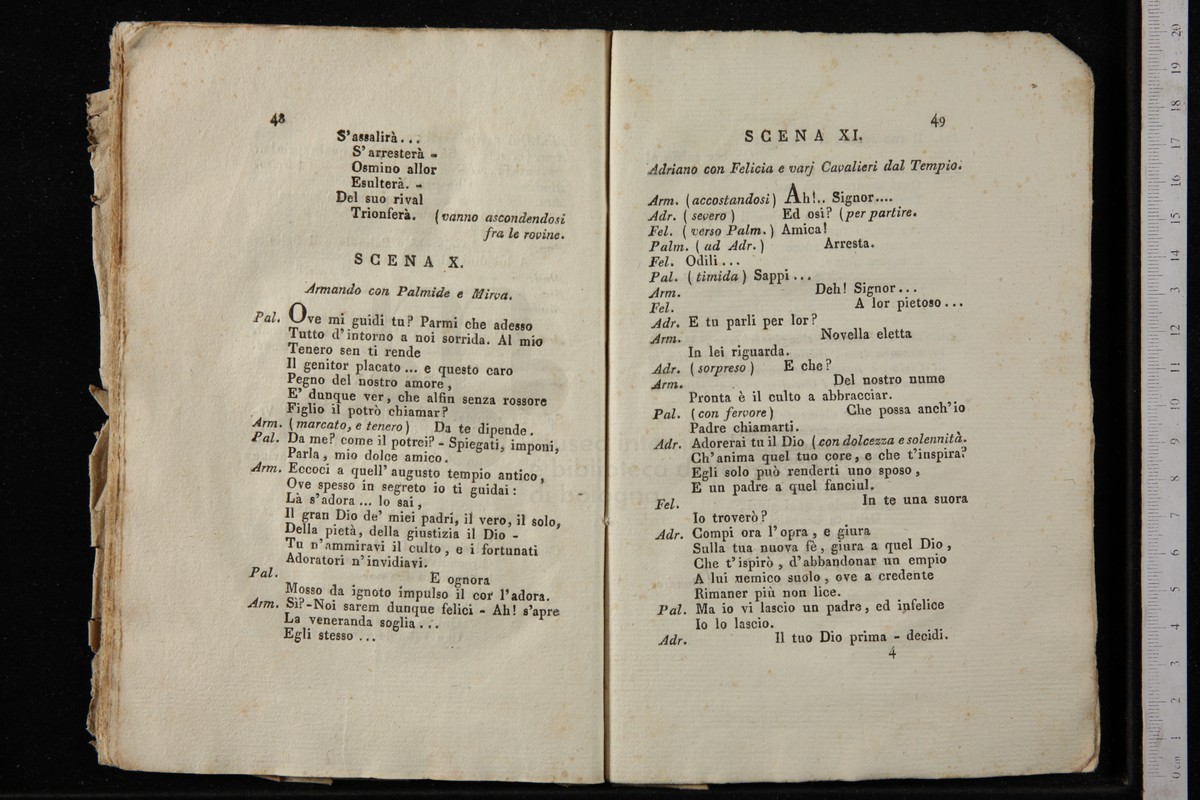 48
S'assalirà...
S'arresterà -
Osmino allor
Esulterà. -
Del suo rival
Trionferà. (vanno ascondendosi
fra le rovine.
SCENA X.
Armando con Palmide e Mirva.
Pal. Ove mi guidi tu? Parmi che adesso
Tutto d'intorno a noi sorrida. Al mio
Tenero sen ti rende
Il genitor placato ... e questo caro
Pegno del nostro amore,
E' dunque ver, che alfin senza rossore
Figlio il potrò chiamar?
Arm. (marcato, e tenero) Da te dipende.
Pal. Da me? come il potrei? - Spiegati, imponi,
Parla, mio dolce amico.
Arm. Eccoci a quell' augusto tempio antico,
Ove spesso in segreto io ti guidai:
Là s'adora ... lo sai,
Il gran Dio de' miei padri, il vero, il solo,
Della pietà, della giustizia il Dio -
Tu n'ammiravi il culto, e i fortunati
Adoratori n'invidiavi.
Pal. E ognora
Mosso da ignoto impulso il cor l'adora.
Arm. Sì?-Noi sarem dunque felici - Ah! s'apre
La veneranda soglia ...
Egli stesso ...
49
SCENA XI.
Adriano con Felicia e varj Cavalieri dal Tempio.
Arm. (accostandosi) Ah!.. Signor....
Adr. (severo) Ed osi? (per partire.
Fel. (verso Palm.) Amica!
Palm. (ad Adr.) Arresta.
Fel. Odili ...
Pal. (timida) Sappi ...
Arm. Deh! Signor ...
Fel. A lor pietoso ...
Adr. E tu parli per lor?
Arm. Novella eletta
In lei riguarda.
Adr. (sorpreso) E che?
Arm. Del nostro nume
Pronta è il culto a abbracciar.
Pal. (con fervore) Che possa anch'io
Padre chiamarti.
Adr. Adorerai tu il Dio (con dolcezza e solennità.
Ch'anima quel tuo core, e che t'inspira?
Egli solo può renderti uno sposo,
E un padre a quel fanciul.
Fel. In te una suora
Io troverò?
Adr. Compi ora l'opra, e giura
Sulla tua nuova fè, giura a quel Dio,
Che t'ispirò, d'abbandonar un empio
A lui nemico suolo, ove a credente
Rimaner più non lice.
Pal. Ma io vi lascio un padre, ed infelice
Io lo lascio.
Adr. Il tuo Dio prima - decidi.
4